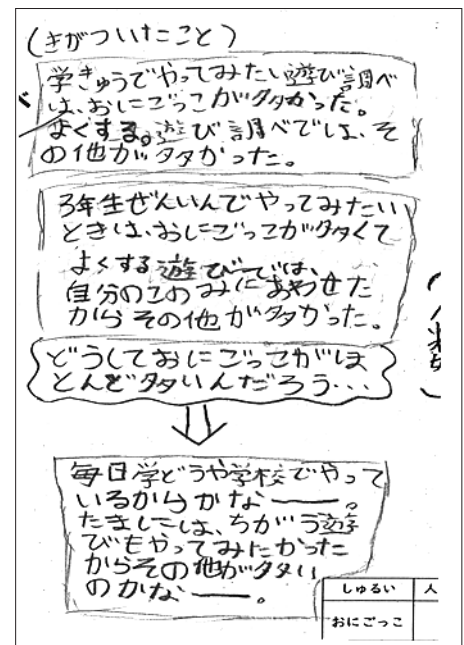 (きがついたこと)
学きゅうでやってみたい遊び調べ
は、おにごっこが多かった。
よくする。遊び調べでは、そ
の他が多かった。
3年生ぜんいんでやってみたい
ときは、おにごっこが多くて
よくする遊びでは、
自分のこのみにあわせた
からその他が多かった。
どうしておにごっこがほ
とんど多いんだろう・・・
毎日学どうや学校でやって
いるからかなー。
たまには、ちがう遊
びもやってみたかった
からその他が多い
のかなー。
しゅるい 人
おにごっこ